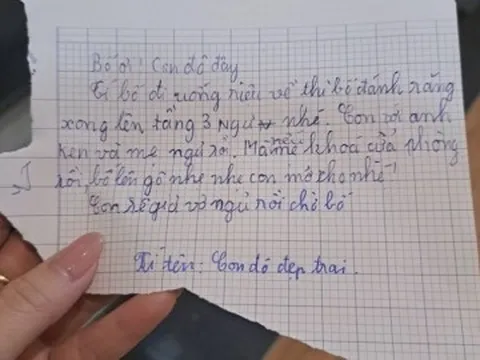 Bố ơi! Con đô đây
Tí bố đi uống riêu về thì bố đánh răng
xong lên tầng 3 ngủ nhé. Con với anh
ken và mẹ ngủ rồi. Mà nếu mẹ khoá cửa phòng
rồi bố lên gõ nhẹ nhẹ con mở cho nhé
Con sẽ giả vờ ngủ rồi chờ bố
Kí tên: Con đô đẹp trai.